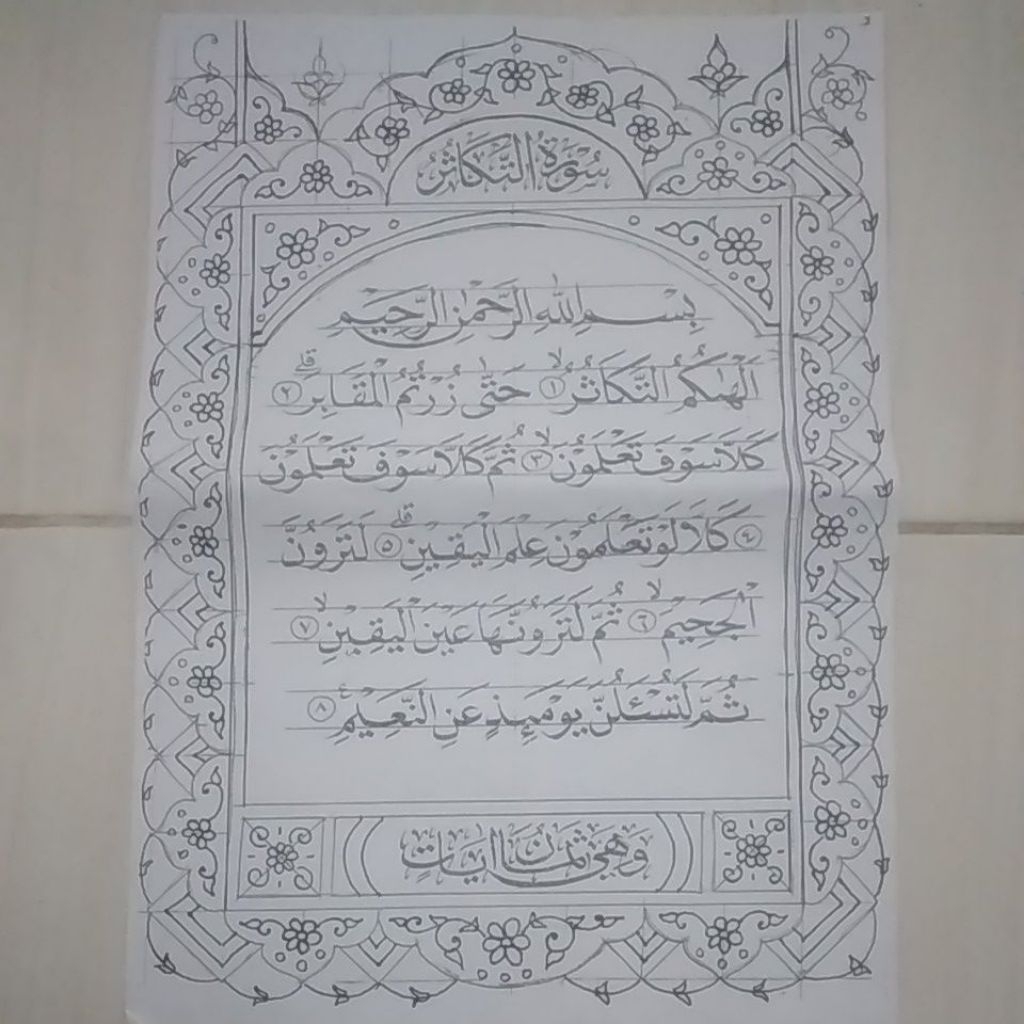 سُوْرَةُ التَّكَاثُرُ
بِسْمِ اللّٰهِ الرَّحْمٰنِ الرَّحِيْمِ
اَلْهٰىكُمُ التَّكَاثُرُۙ ١ حَتّٰى زُرْتُمُ الْمَقَابِرَۗ ٢
كَلَّا سَوْفَ تَعْلَمُوْنَۙ ٣ ثُمَّ كَلَّا سَوْفَ تَعْلَمُوْنَ
٤ كَلَّا لَوْ تَعْلَمُوْنَ عِلْمَ الْيَقِيْنِۗ ٥ لَتَرَوُنَّ
الْجَحِيْمَۙ ٦ ثُمَّ لَتَرَوُنَّهَا عَيْنَ الْيَقِيْنِۙ ٧
ثُمَّ لَتُسْـَٔلُنَّ يَوْمَىِٕذٍ عَنِ النَّعِيْمِ ٨
وَهِيَ ثَمَانُ اٰيَاتٍ